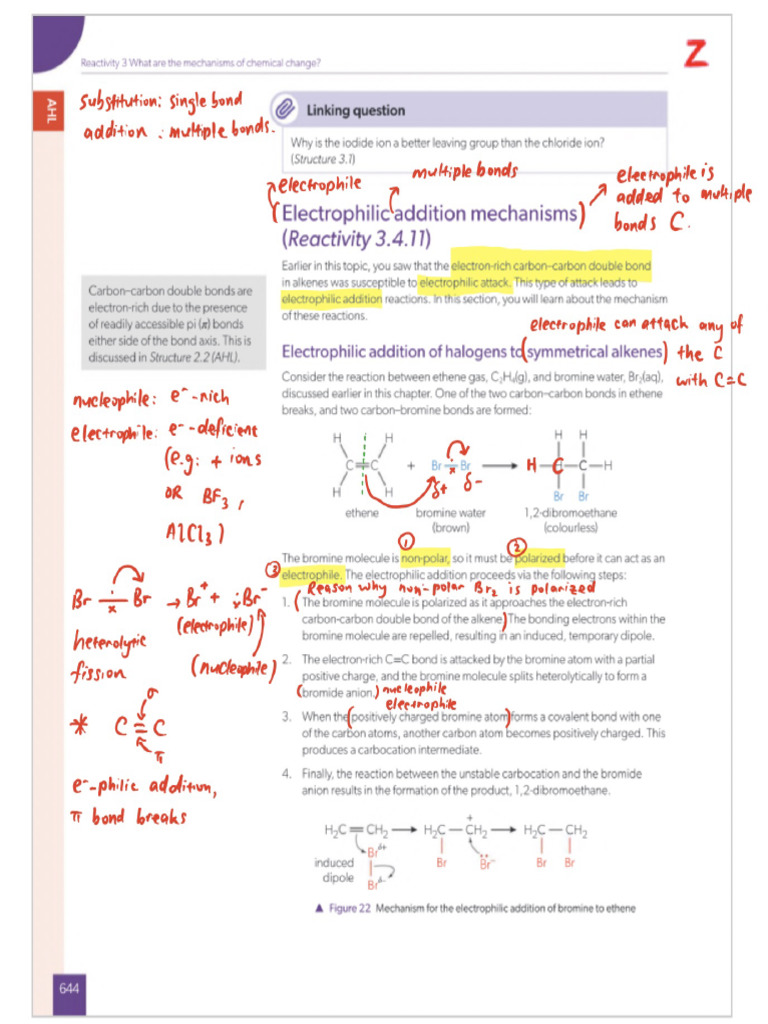 Reactivity 3 What are the mechanisms of chemical change?
Z
AHL
substitution: single bond
addition: multiple bonds.
Linking question
Why is the iodide ion a better leaving group than the chloride ion?
(Structure 3.1)
electrophile
multiple bonds
electrophile is
added to multiple
bonds C.
(Electrophilic addition mechanisms)
(Reactivity 3.4.11)
Earlier in this topic, you saw that the electron-rich carbon–carbon double bond
in alkenes was susceptible to electrophilic attack. This type of attack leads to
electrophilic addition reactions. In this section, you will learn about the mechanism
of these reactions.
Carbon–carbon double bonds are
electron-rich due to the presence
of readily accessible pi (π) bonds
either side of the bond axis. This is
discussed in Structure 2.2 (AHL).
electrophile can attack any of
the C
with C=C
Electrophilic addition of halogens to (symmetrical alkenes)
Consider the reaction between ethene gas, C₂H₄(g), and bromine water, Br₂(aq),
discussed earlier in this chapter. One of the two carbon–carbon bonds in ethene
breaks, and two carbon–bromine bonds are formed:
nucleophile: e⁻-rich
electrophile: e⁻-deficient
(e.g: + ions
OR BF₃,
AlCl₃)
H H H H
C=C + Br–Br H–C–C–H
δ+ δ-
H H Br Br
ethene bromine water 1,2-dibromoethane
(brown) (colourless)
① ②
The bromine molecule is non-polar, so it must be polarized before it can act as an
③ electrophile. The electrophilic addition proceeds via the following steps:
Reason why non-polar Br₂ is polarized
1. (The bromine molecule is polarized as it approaches the electron-rich
carbon-carbon double bond of the alkene) The bonding electrons within the
bromine molecule are repelled, resulting in an induced, temporary dipole.
Br Br → Br⁺ + :Br⁻
(electrophile)
heterolytic
fission
(nucleophile)
2. The electron-rich C=C bond is attacked by the bromine atom with a partial
positive charge, and the bromine molecule splits heterolytically to form a
(bromide anion.) nucleophile
electrophile
3. When the (positively charged bromine atom) forms a covalent bond with one
of the carbon atoms, another carbon atom becomes positively charged. This
produces a carbocation intermediate.
σ
* C=C
π
e⁻-philic addition,
π bond breaks
4. Finally, the reaction between the unstable carbocation and the bromide
anion results in the formation of the product, 1,2-dibromoethane.
H₂C=CH₂ → H₂C–CH₂ → H₂C–CH₂
+
Brδ+ Br :Br⁻ Br Br
induced
dipole Brδ-
▲ Figure 22 Mechanism for the electrophilic addition of bromine to ethene
644